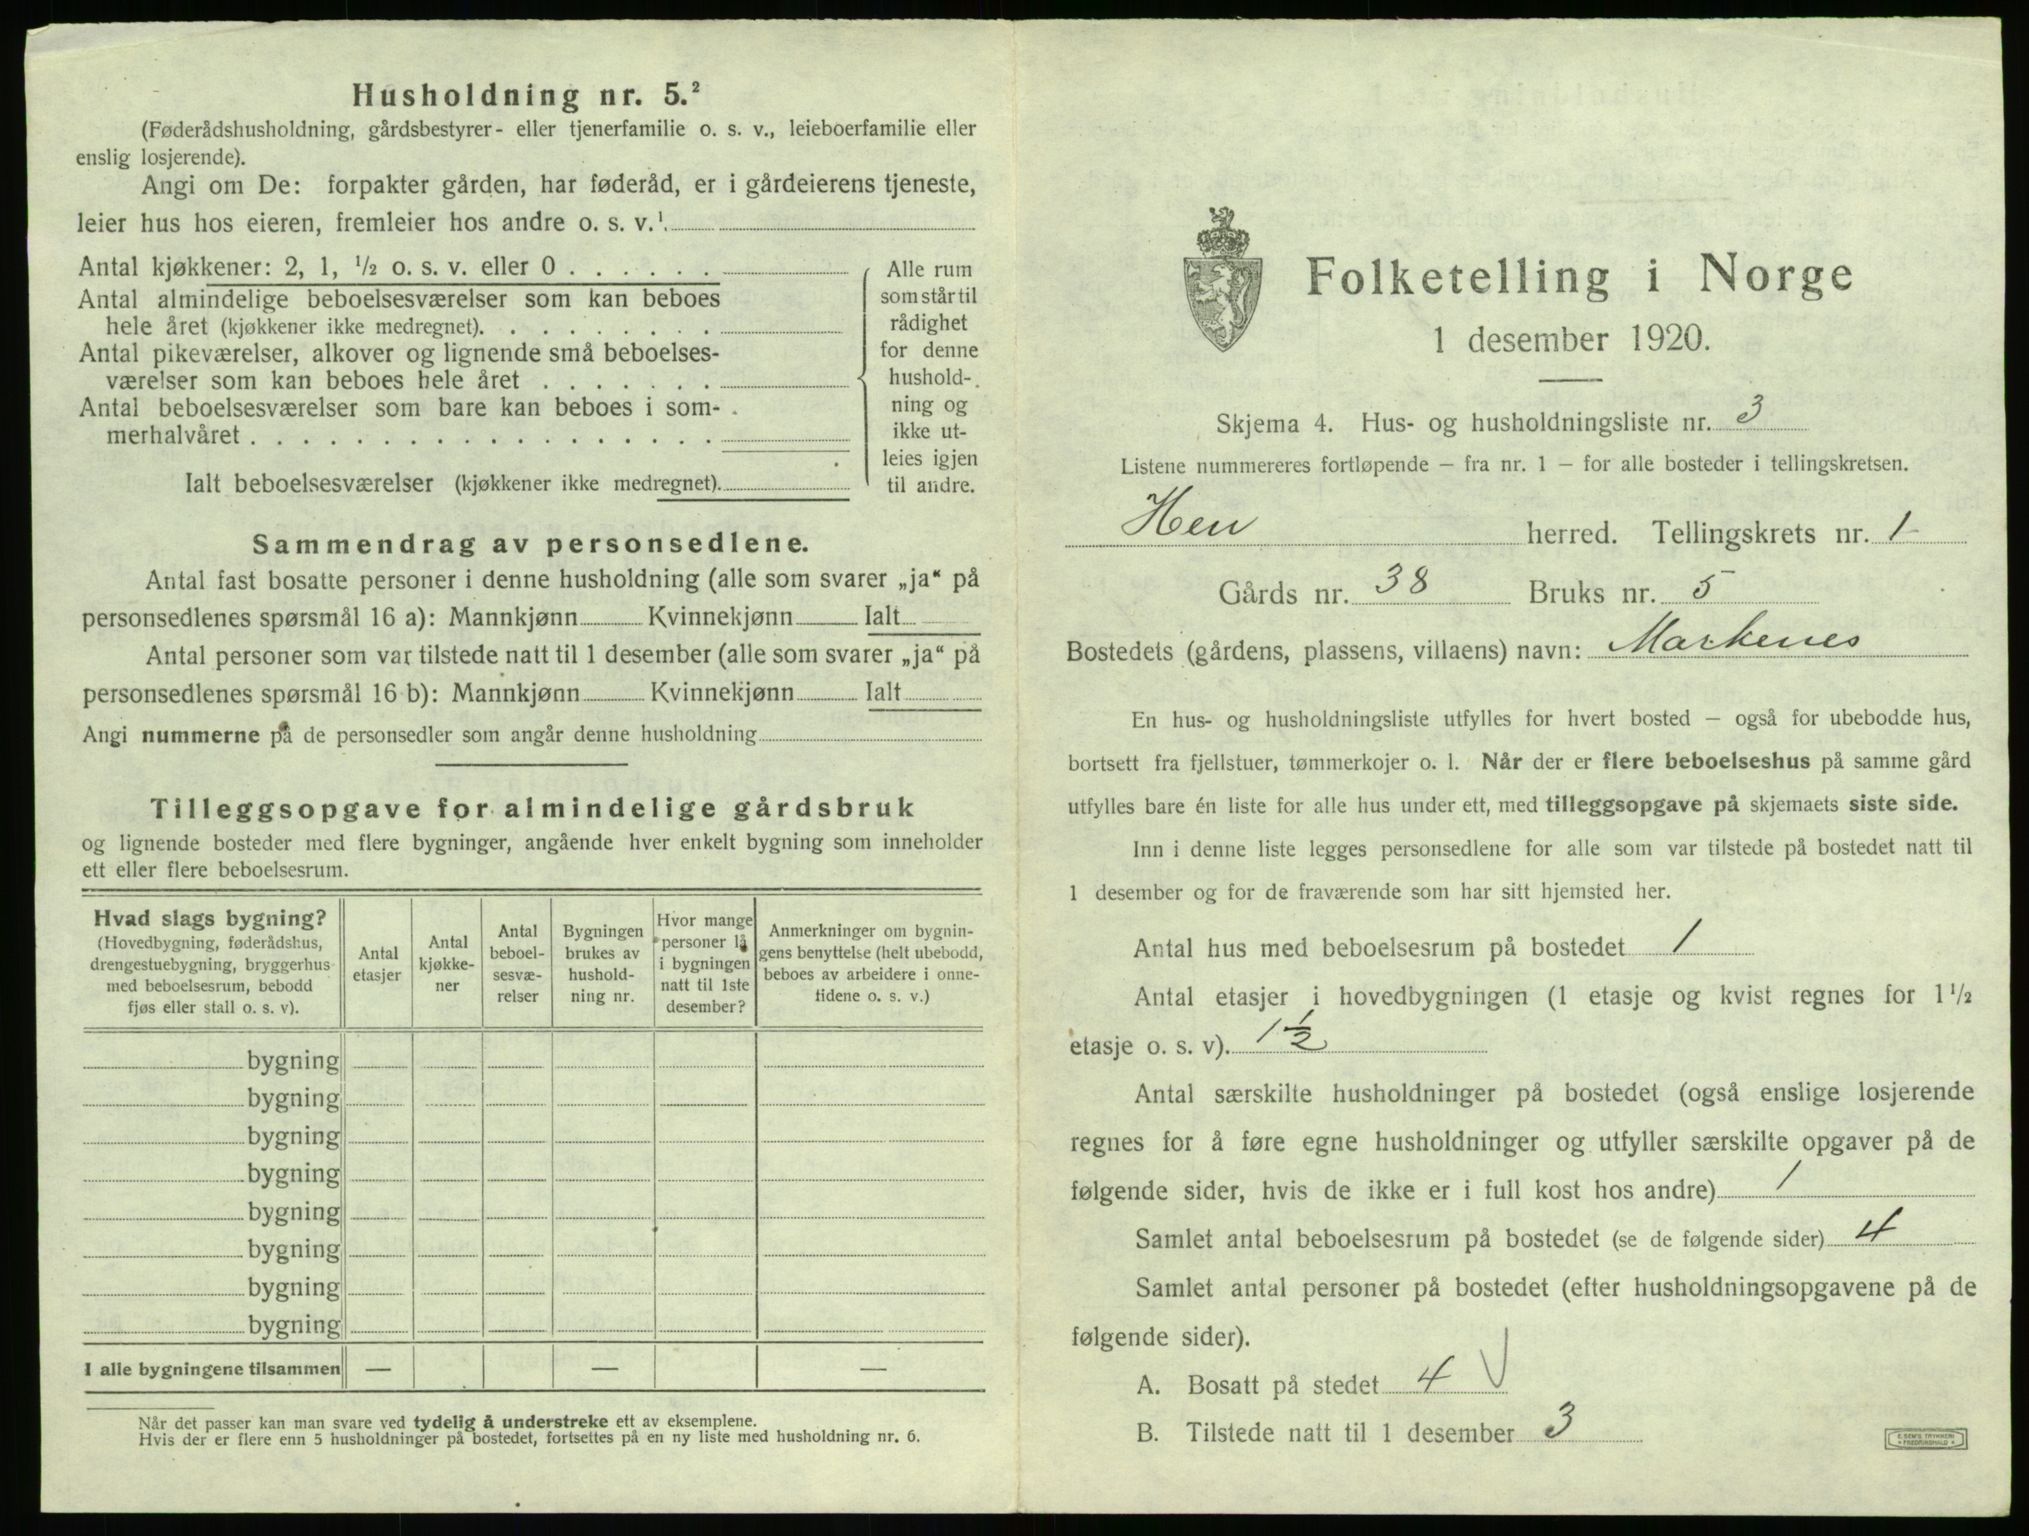 Husholdning nr. 5.²
(Føderådshusholdning, gårdsbestyrer- eller tjenerfamilie o. s. v., leieboerfamilie eller
enslig losjerende).
Angi om De: forpakter gården, har føderåd, er i gårdeierens tjeneste,
leier hus hos eieren, fremleier hos andre o. s. v.¹
Antal kjøkkener: 2, 1, ½ o. s. v. eller 0 . . . . . .
Antal almindelige beboelsesværelser som kan beboes
hele året (kjøkkener ikke medregnet). . . . . . . . .
Antal pikeværelser, alkover og lignende små beboelses-
værelser som kan beboes hele året . . . . . . .
Antal beboelsesværelser som bare kan beboes i som-
merhalvåret . . . . . . . . . . . . . . . . . .
Ialt beboelsesværelser (kjøkkener ikke medregnet).
Alle rum
som står til
rådighet
for denne
hushold-
ning og
ikke ut-
leies igjen
til andre.
Sammendrag av personsedlene.
Antal fast bosatte personer i denne husholdning (alle som svarer „ja“ på
personsedlenes spørsmål 16 a): Mannkjønn Kvinnekjønn Ialt
Antal personer som var tilstede natt til 1 desember (alle som svarer „ja“ på
personsedlenes spørsmål 16 b): Mannkjønn Kvinnekjønn Ialt
Angi nummerne på de personsedler som angår denne husholdning
Tilleggsopgave for almindelige gårdsbruk
og lignende bosteder med flere bygninger, angående hver enkelt bygning som inneholder
ett eller flere beboelsesrum.
Hvad slags bygning?
(Hovedbygning, føderådshus,
drengestuebygning, bryggerhus
med beboelsesrum, bebodd
fjøs eller stall o. s. v).
Antal
etasjer
Antal
kjøkke-
ner
Antal
beboel-
sesvæ-
relser
Bygningen
brukes av
hushold-
ning nr.
Hvor mange
personer lå
i bygningen
natt til 1ste
desember?
Anmerkninger om bygnin-
gens benyttelse (helt ubebodd,
beboes av arbeidere i onne-
tidene o. s. v.)
bygning
bygning
bygning
bygning
bygning
bygning
bygning
bygning
I alle bygningene tilsammen — — —
Når det passer kan man svare ved tydelig å understreke ett av eksemplene.
Hvis der er flere enn 5 husholdninger på bostedet, fortsettes på en ny liste med husholdning nr. 6.
Folketelling i Norge
1 desember 1920.
Skjema 4. Hus- og husholdningsliste nr. 3
Listene nummereres fortløpende – fra nr. 1 – for alle bosteder i tellingskretsen.
Hen herred. Tellingskrets nr. 1
Gårds nr. 38 Bruks nr. 5
Bostedets (gårdens, plassens, villaens) navn: Markenes
En hus- og husholdningsliste utfylles for hvert bosted – også for ubebodde hus,
bortsett fra fjellstuer, tømmerkojer o. l. Når der er flere beboelseshus på samme gård
utfylles bare én liste for alle hus under ett, med tilleggsopgave på skjemaets siste side.
Inn i denne liste legges personsedlene for alle som var tilstede på bostedet natt til
1 desember og for de fraværende som har sitt hjemsted her.
Antal hus med beboelsesrum på bostedet 1
Antal etasjer i hovedbygningen (1 etasje og kvist regnes for 1½
etasje o. s. v). 1½
Antal særskilte husholdninger på bostedet (også enslige losjerende
regnes for å føre egne husholdninger og utfyller særskilte opgaver på de
følgende sider, hvis de ikke er i full kost hos andre) 1
Samlet antal beboelsesrum på bostedet (se de følgende sider) 4
Samlet antal personer på bostedet (efter husholdningsopgavene på de
følgende sider).
A. Bosatt på stedet 4 V
B. Tilstede natt til 1 desember 3
E. SEM'S TRYKKERI
FREDRIKSHALD